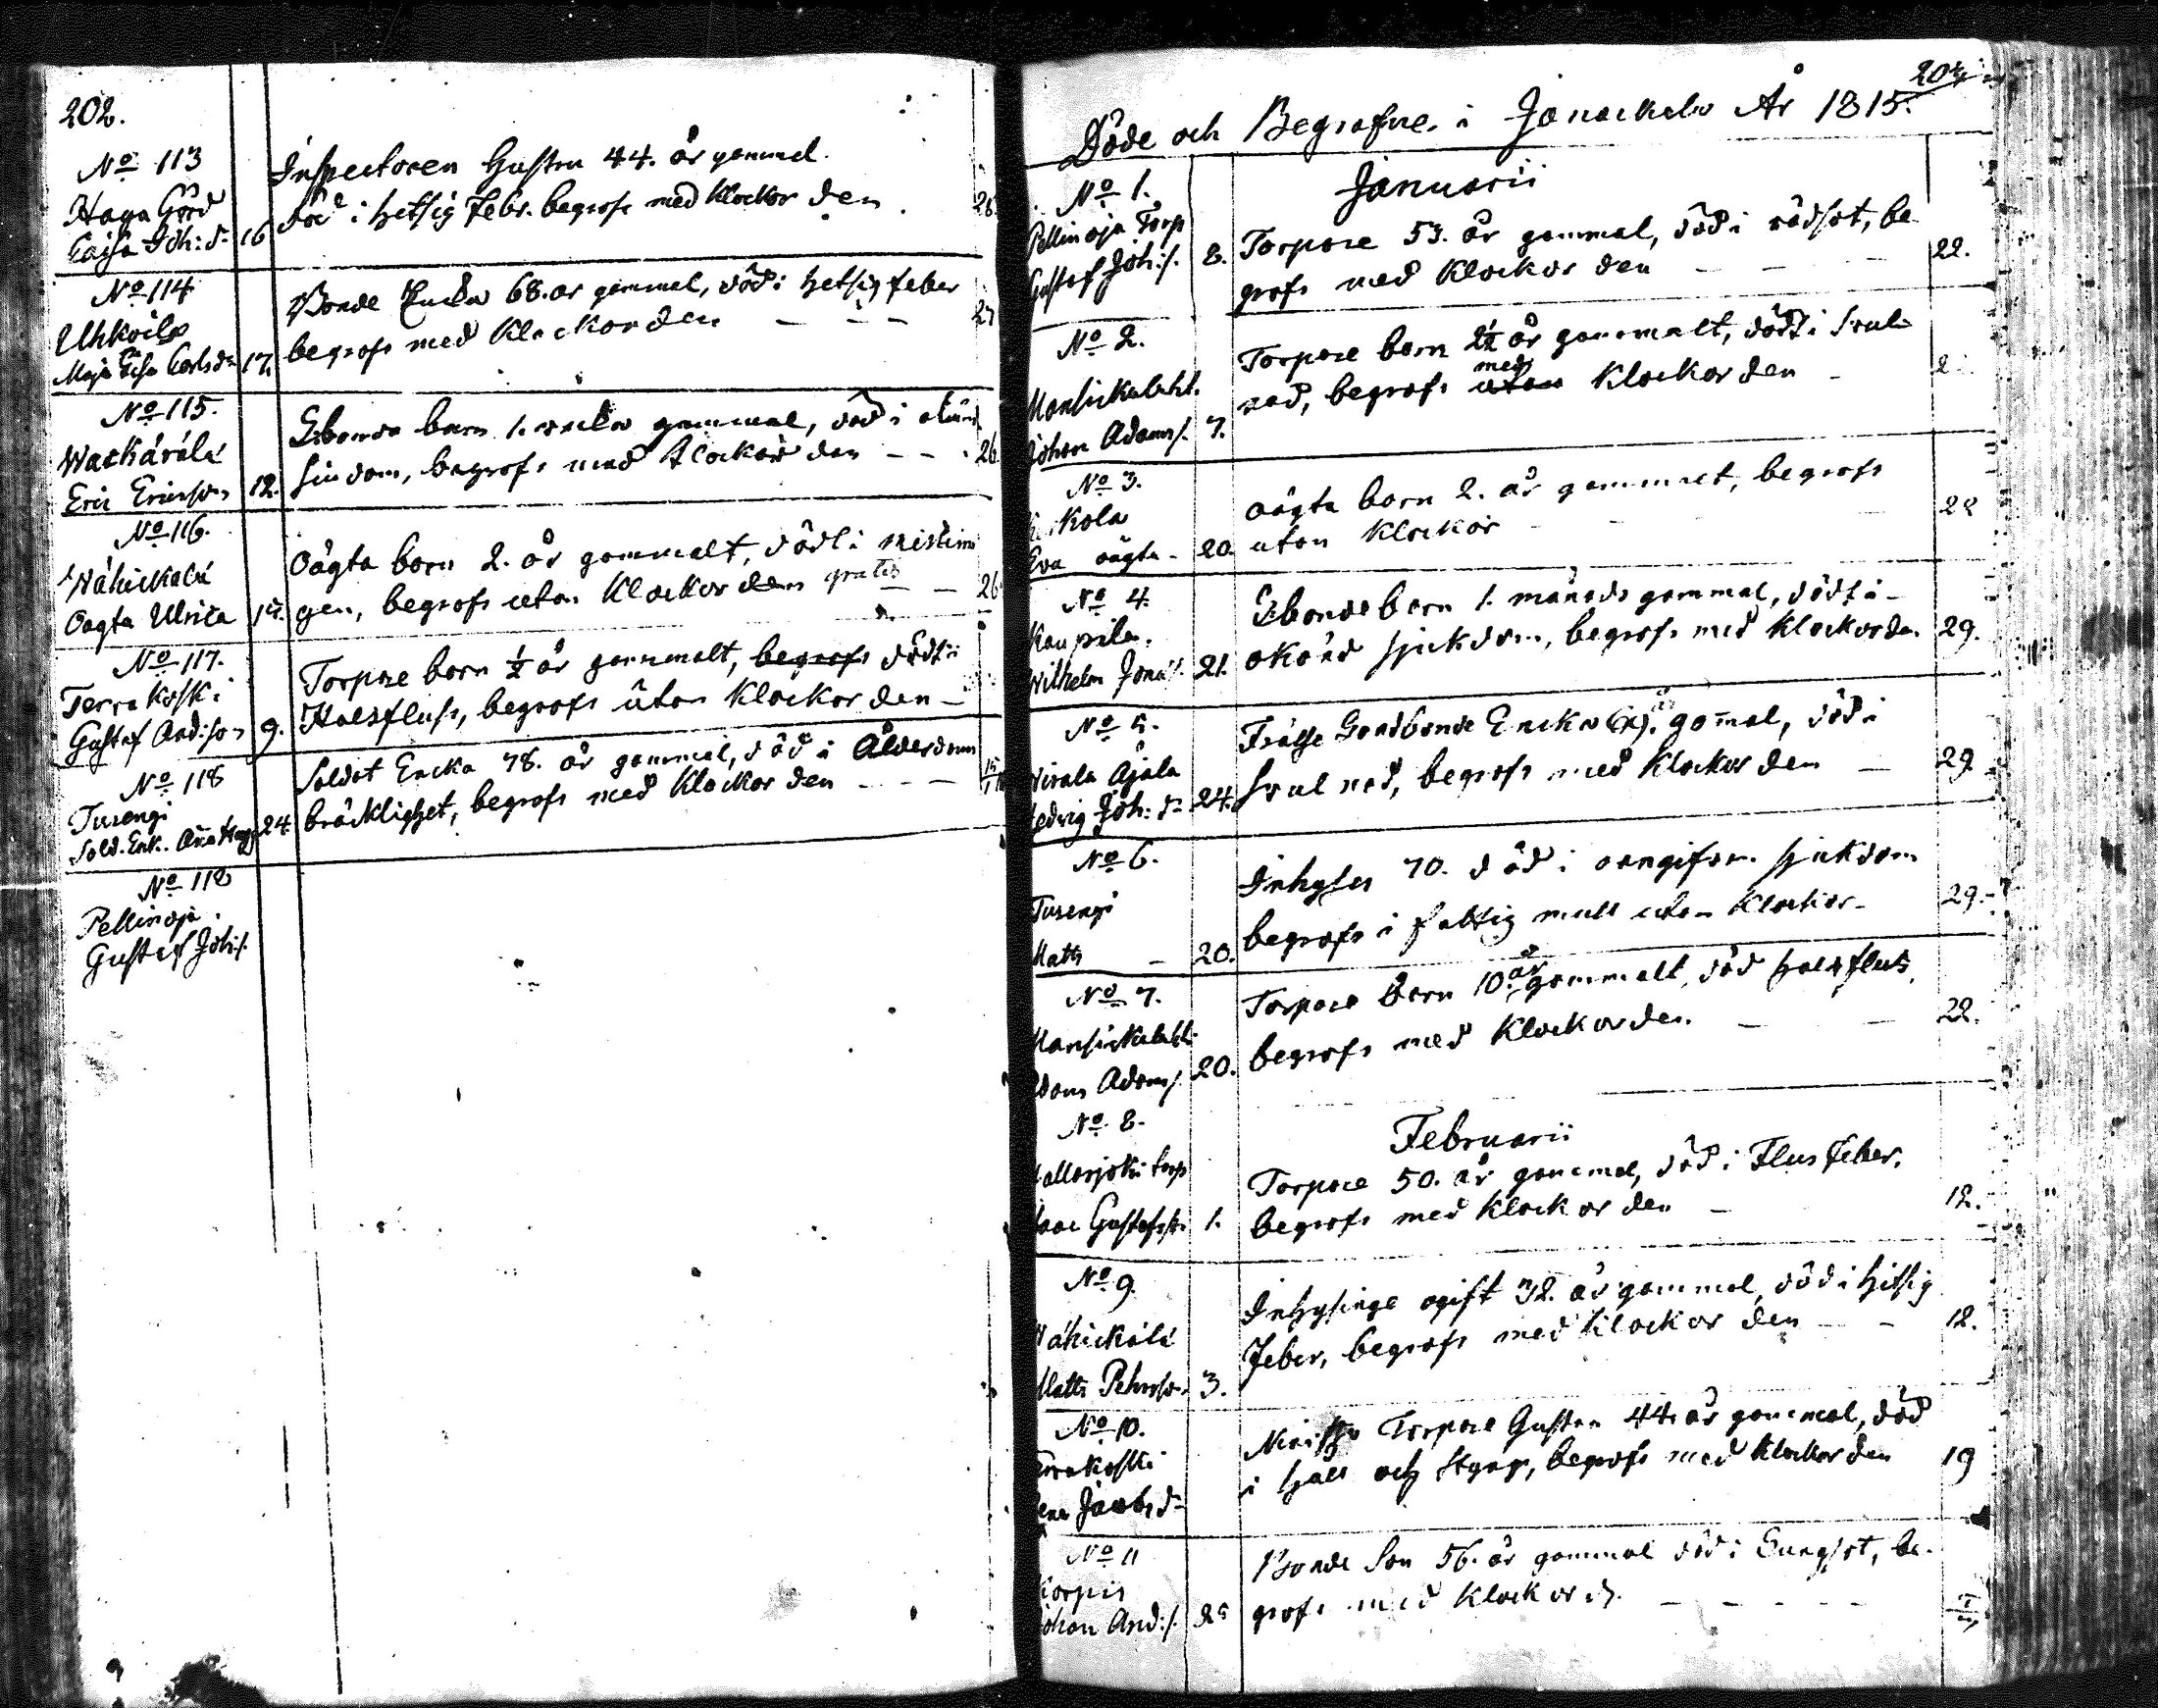 202.
No 113
Haga Gård
Caisa Joh: dr 16
Inspectoren Hustru 44. år gammal
död i hetsig Feber. begrofs med Klockor den 26.
No 114
Uhkoila
Maja Lisa Carlsdr 17.
Bonde Encka 68. år gammal, död i hetsig feber
begrofs med Klockor den - - - 27
No 115.
Wackärälä
Eric Ericsson 12.
Bonde barn 1. vecka gammal, död i okänd
siukdom, begrofs med Klockor den - - - 26.
No 116.
Wähickälä
Oägta Ulrica 15.
Oägta barn 2. år gammalt, dödt i
gen, begrofs utan Klockor den gratis - 26
No 117.
Terrakoski
Gustaf And:son 9.
Torpare barn ½ år gammalt, begrofs dödt i
Halsfluss, begrofs utan Klockor den -
No 118
Turengi
Sold. Enk. Anna 24.
Soldat Encka 78. år gammal, död i Ålderdoms
bräcklighet, begrofs med Klockor den - - -
No 118
Pellinoja
Gustaf Joh:s.
204
Döde och Begrafne i Janackala År 1815.
Januarii
No 1.
Pellinoja Torp
Gustaf Joh:s. 8.
Torpare 53. år gammal, död i rödsot, be-
grofs med Klockor den - - - 22.
No 2.
Mansickalaht.
Johan Adams. 7.
Torpare barn 2½ år gammalt, dödt i Sval-
med
nad, begrofs utan Klockor den - 2
No 3.
kola
Eva oägta - 20.
oägta barn 2. år gammalt, begrofs
utan Klockor - - 22
No 4.
Kauppila.
Wilhelm Jonas. 21.
Bonde barn 1. månads gammal, dödt i
okänd sjukdom, begrofs med Klockor den 29.
No 5.
Wirala Äjälä
Hedvig Joh: dr 24.
Frälse Landbonde Encka gammal, död i
Svalnad, begrofs med Klockor den - 29
No 6.
Turengi
Matts - 20.
Inhyses 70. död i oangifven sjukdom
begrofs i fattig mull utan Klockor - 29.
No 7.
Mansickalahti
Adam Adams. 20.
år
Torpare barn 10. gammalt, död halsfluss,
begrofs med Klockor den. - - 22.
Februarii
No 8.
torp
Isaac Gustafsson 1.
Torpare 50. år gammal, död i Flussfeber,
begrofs med Klockor den - 12.
No 9.
Wähickälä
Matts Pehrsson 3.
Inhysinge ogift 32. år gammal, död i hetsig
Feber, begrofs med Klockor den - - 12.
No 10.
Terrakoski
Lena Jacobsdr
Torpare Hustru 44. år gammal, död
i håll och styng, begrofs med Klockor den 19
No 11
Korpis
Johan And:s. 25
Bonde Son 56. år gammal död i Lungsot, be-
grofs med Klockor d. - - - -